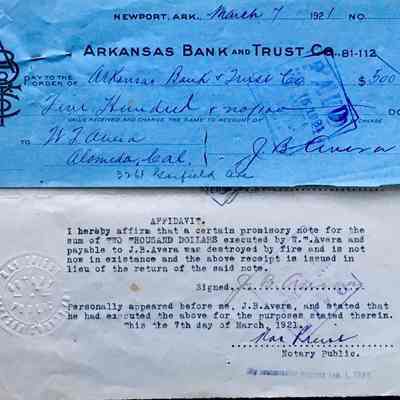 NEWPORT, ARK. March 7 1921 NO.
ARKANSAS BANK AND TRUST CO. 81-112
PAY TO THE ORDER OF Arkansas Bank & Trust Co $500
Five Hundred & no/100 DO
VALUE RECEIVED AND CHARGE THE SAME TO ACCOUNT OF
TO W T Avera J B Avera
Alameda, Cal,
3261 Garfield Ave
PAID
AFFIDAVIT.
I hereby affirm that a certain promisory note for the
sum of TWO THOUSAND DOLLARS executed by W.T.Avera and
payable to J.B.Avera was destroyed by fire and is not
now in existance and the above receipt is issued in
lieu of the return of the said note.
Signed, J. B. Avera
Personally appeared before me, J.B.Avera, and stated that
he had executed the above for the purposes stated therein.
This the 7th day of March, 1921.
Notary Public.